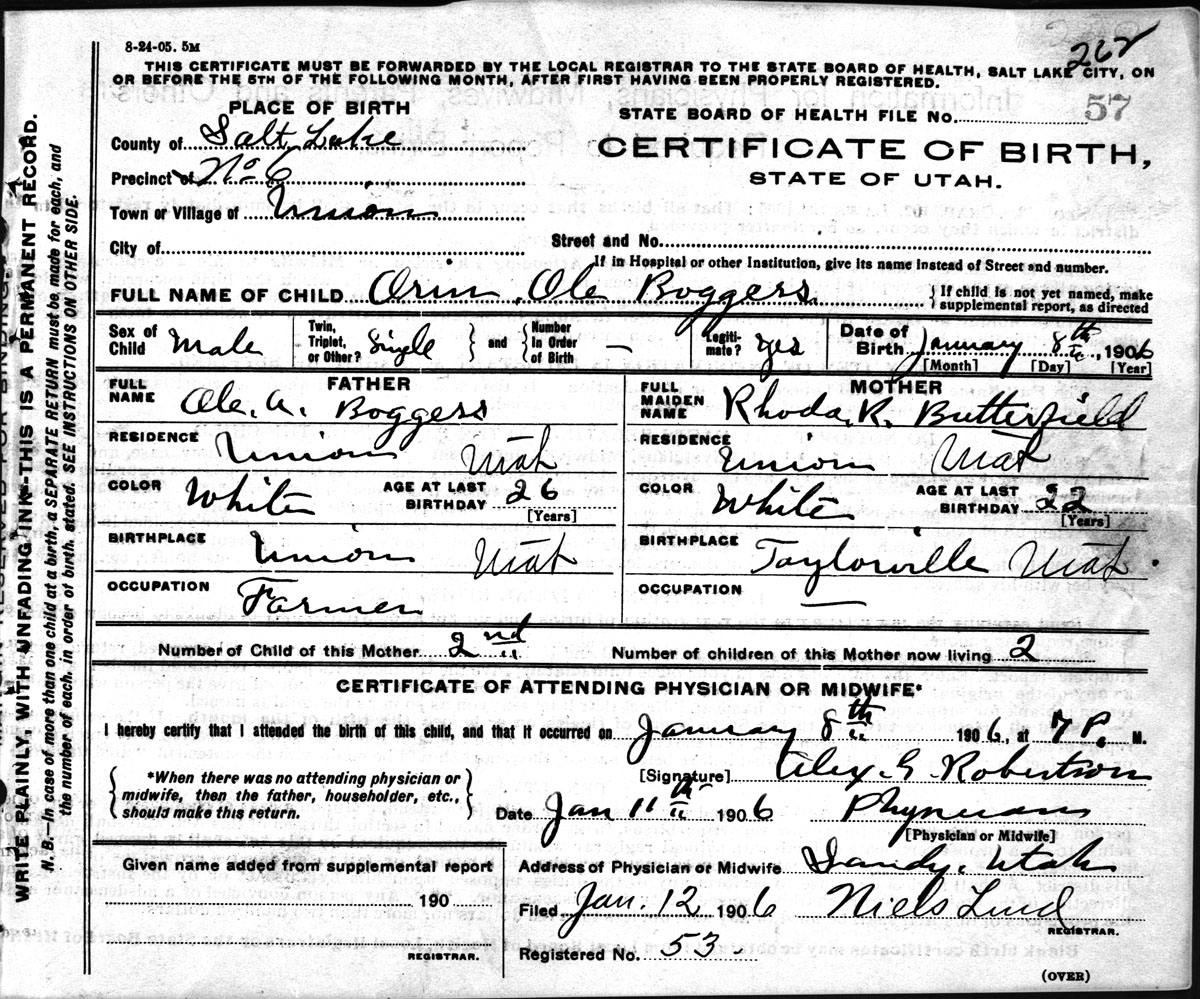 8-24-05. 5M
262
THIS CERTIFICATE MUST BE FORWARDED BY THE LOCAL REGISTRAR TO THE STATE BOARD OF HEALTH, SALT LAKE CITY, ON
OR BEFORE THE 5TH OF THE FOLLOWING MONTH, AFTER FIRST HAVING BEEN PROPERLY REGISTERED.
PLACE OF BIRTH
STATE BOARD OF HEALTH FILE No. 57
County of Salt Lake
CERTIFICATE OF BIRTH,
STATE OF UTAH.
Precinct of No 6
Town or Village of Union
City of
Street and No.
If in Hospital or other Institution, give its name instead of Street and number.
FULL NAME OF CHILD Orin Ole Boggess
If child is not yet named, make
supplemental report, as directed
Sex of Child Male
Twin, Triplet, or Other? Single
and
Number in Order of Birth —
Legiti- mate? Yes
Date of Birth January 8th, 1906
[Month] [Day] [Year]
FATHER
FULL NAME Ole. A. Boggess
RESIDENCE Union Utah
COLOR White
AGE AT LAST BIRTHDAY 26
[Years]
BIRTHPLACE Union Utah
OCCUPATION Farmer
MOTHER
FULL MAIDEN NAME Rhoda. R. Butterfield
RESIDENCE Union Utah
COLOR White
AGE AT LAST BIRTHDAY 22
[Years]
BIRTHPLACE Taylorville Utah
OCCUPATION —
Number of Child of this Mother 2nd
Number of children of this Mother now living 2
CERTIFICATE OF ATTENDING PHYSICIAN OR MIDWIFE*
I hereby certify that I attended the birth of this child, and that it occurred on January 8th 1906, at 7 P. M.
*When there was no attending physician or
midwife, then the father, householder, etc.,
should make this return.
[Signature] Alex. G. Robertson
Date Jan 11th 1906 Physician
[Physician or Midwife]
Given name added from supplemental report
190
REGISTRAR.
Address of Physician or Midwife Sandy, Utah
Filed Jan. 12 1906 Niels Lind
REGISTRAR.
Registered No. 53
(OVER)
WRITE PLAINLY, WITH UNFADING INK—THIS IS A PERMANENT RECORD.
N. B.—In case of more than one child at a birth, a SEPARATE RETURN must be made for each, and
the number of each, in order of birth, stated. SEE INSTRUCTIONS ON OTHER SIDE.